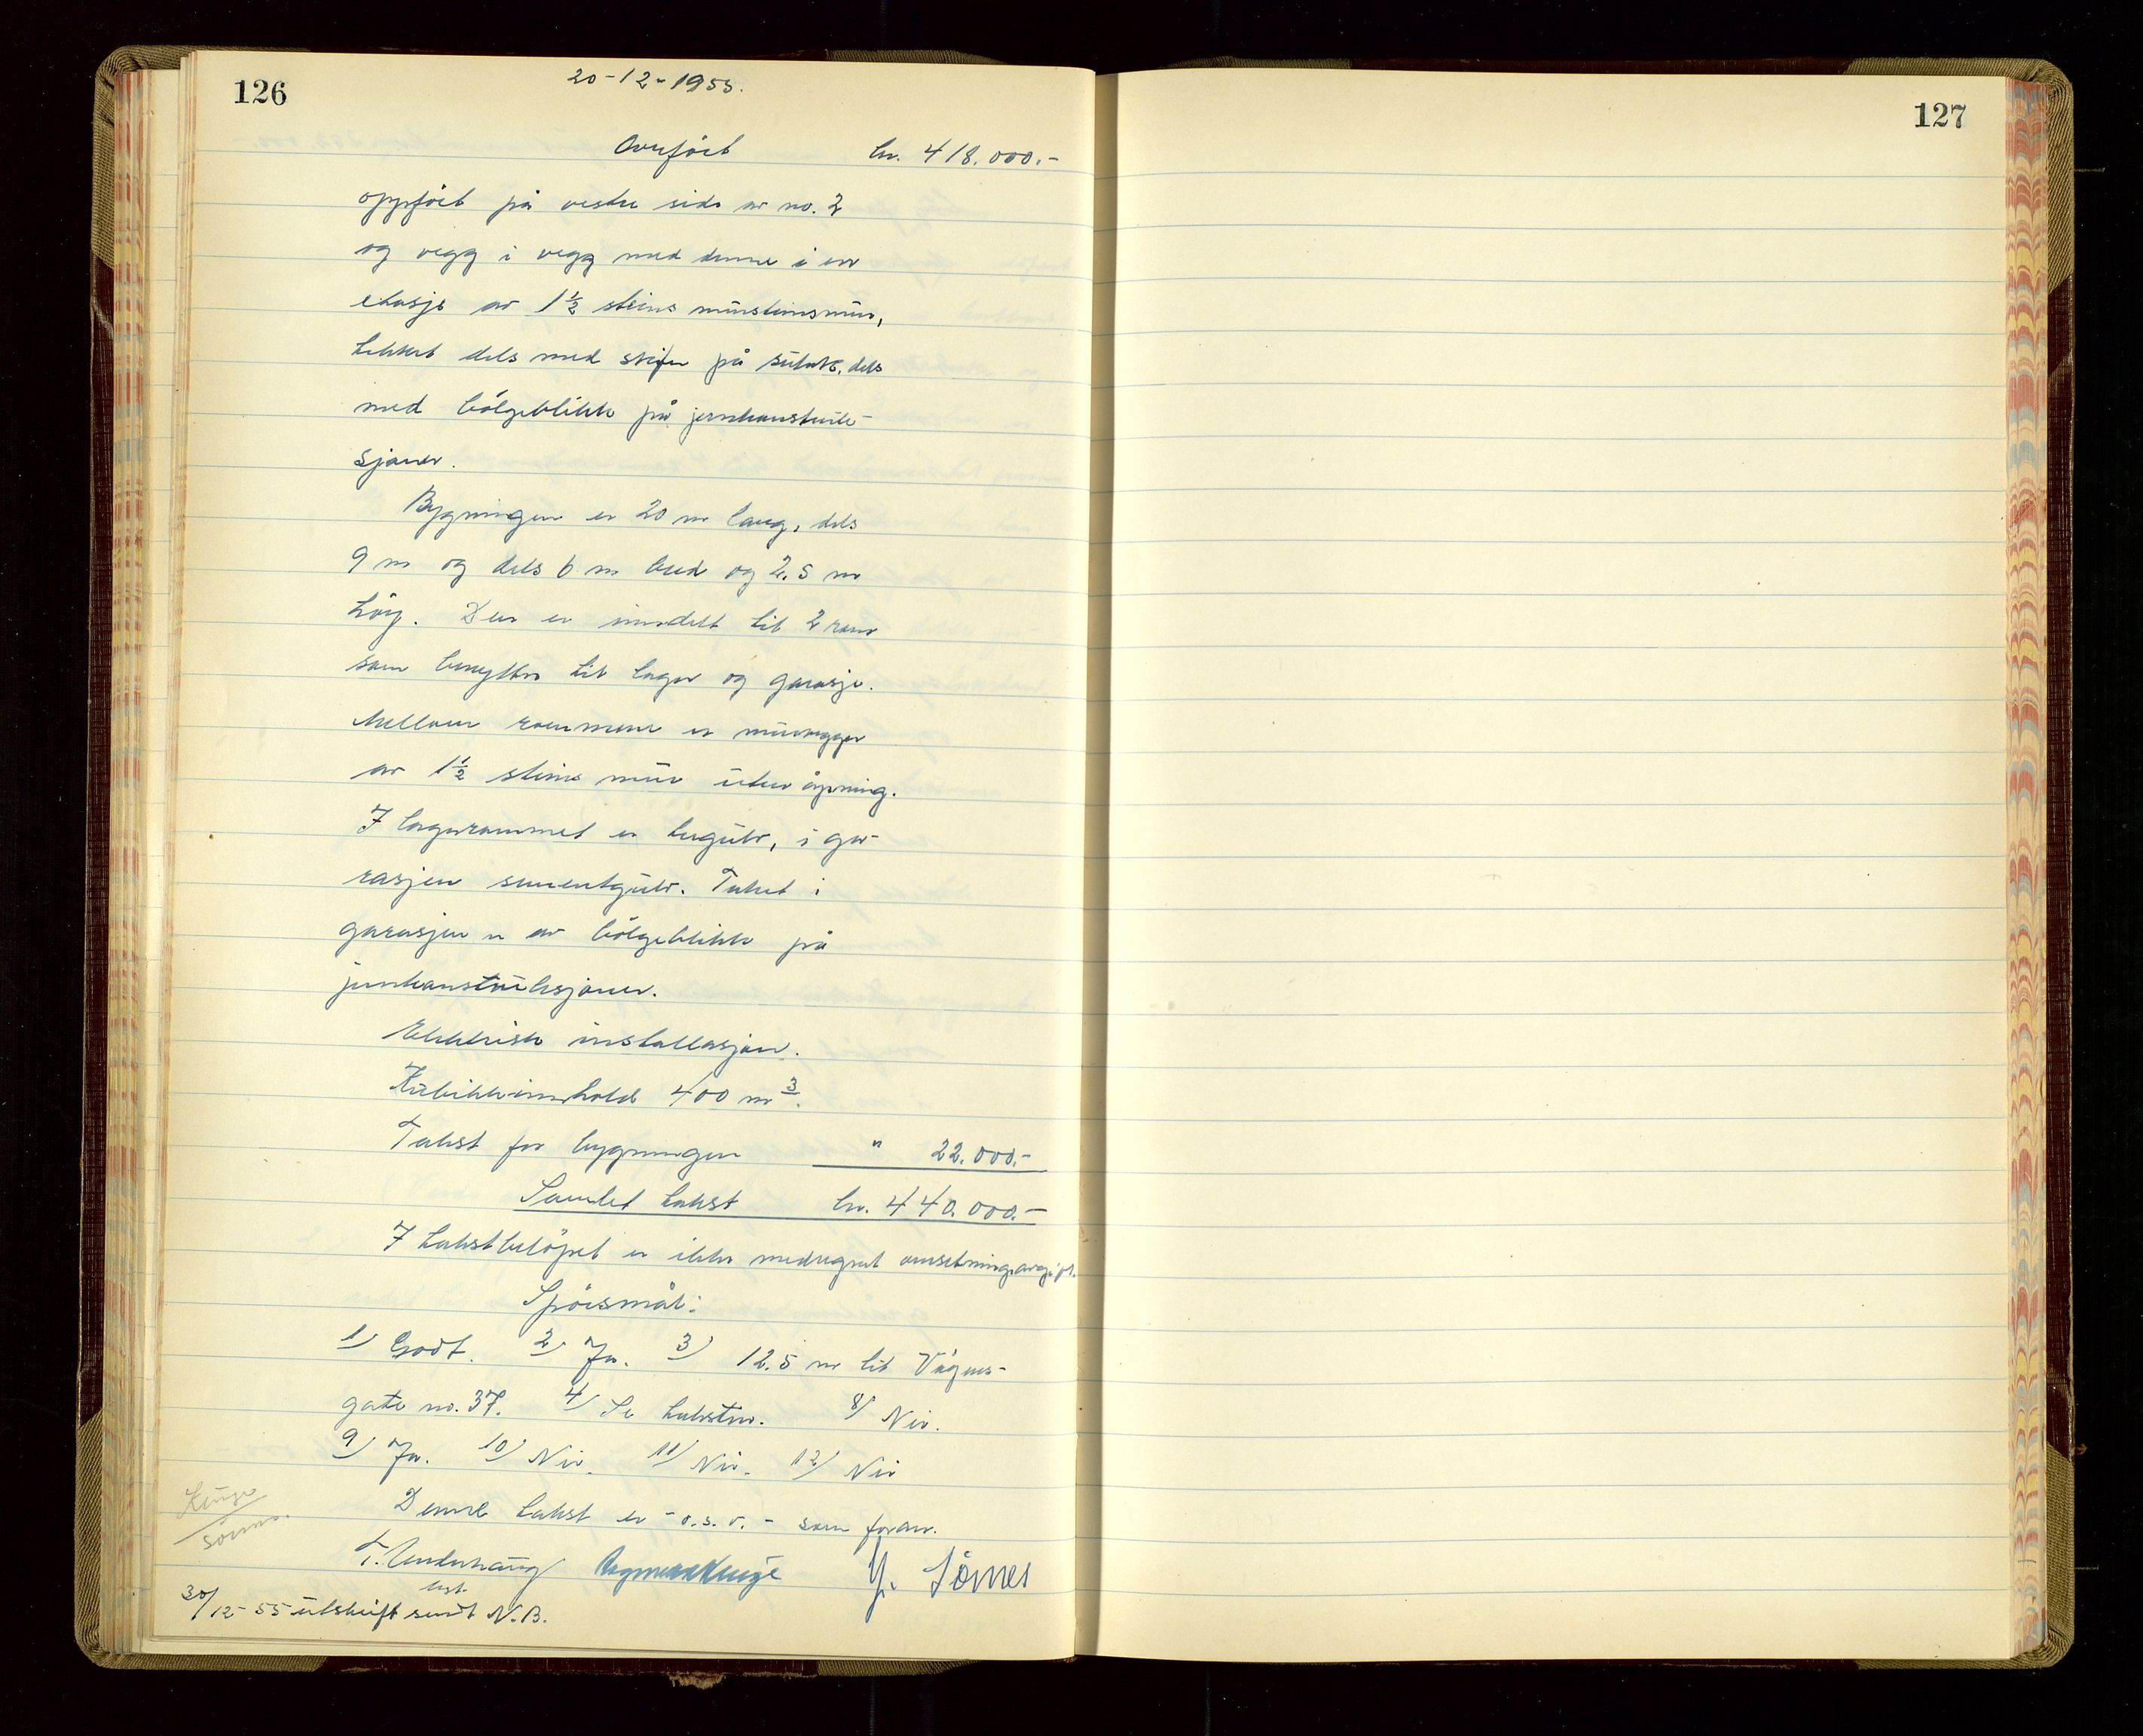 126
20-12-1955.
Overført kr. 418.000.-
oppført på vestre side av no. 2
og vegg i vegg med denne i en
etasje av 1½ steins mursteinsmur,
tekket dels med skifer på sutak, dels
med bølgeblikk på jernkonstruk-
sjoner.
Bygningen er 20 m lang, dels
9 m og dels 6 m bred og 2.5 m
høy. Den er inndelt til 2 rom
som benyttes til lager og garasje.
Mellom rommene er murvegger
av 1½ steins mur uten åpning.
I lagerrommet er tregulv, i ga-
rasjen sementgulv. Taket i
garasjen er av bølgeblikk på
jernkonstruksjoner.
Elektrisk installasjon.
Kubikkinnhold 400 m³.
Takst for bygningen " 22.000.-
Samlet takst kr. 440.000.-
I takstbeløpet er ikke medregnet omsetningsavgift.
Spørsmål:
1/ Godt. 2/ Ja. 3/ 12.5 m til Vågens-
gate no. 37. 4/ Se taksten. 8/ Nei.
9/ Ja. 10/ Nei. 11/ Nei. 12/ Nei
Denne takst er - o.s.v. - som foran.
Kluge
Sømme
T. Underhaug Ragnvald Kluge Y. Sömes
30/12-55 utskrift sendt N.B.
127